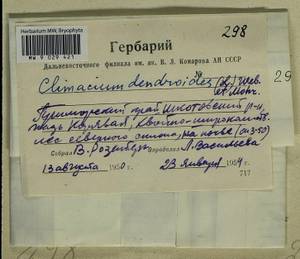 Herbarium MW, Bryophyta
MW 9 029 421
298
Гербарий
Дальневосточного филиала им. ак. В. Л. Комарова АН СССР
Climacium dendroides (L.) Web.
et Mohr.
29
Приморский край Шкотовский р-н,
хвойно-широколиств.
лес северного склона, на почве
Собрал В. Розенберг Определил Л. Васильева
13 августа 1950 г. 23 января 1954
717